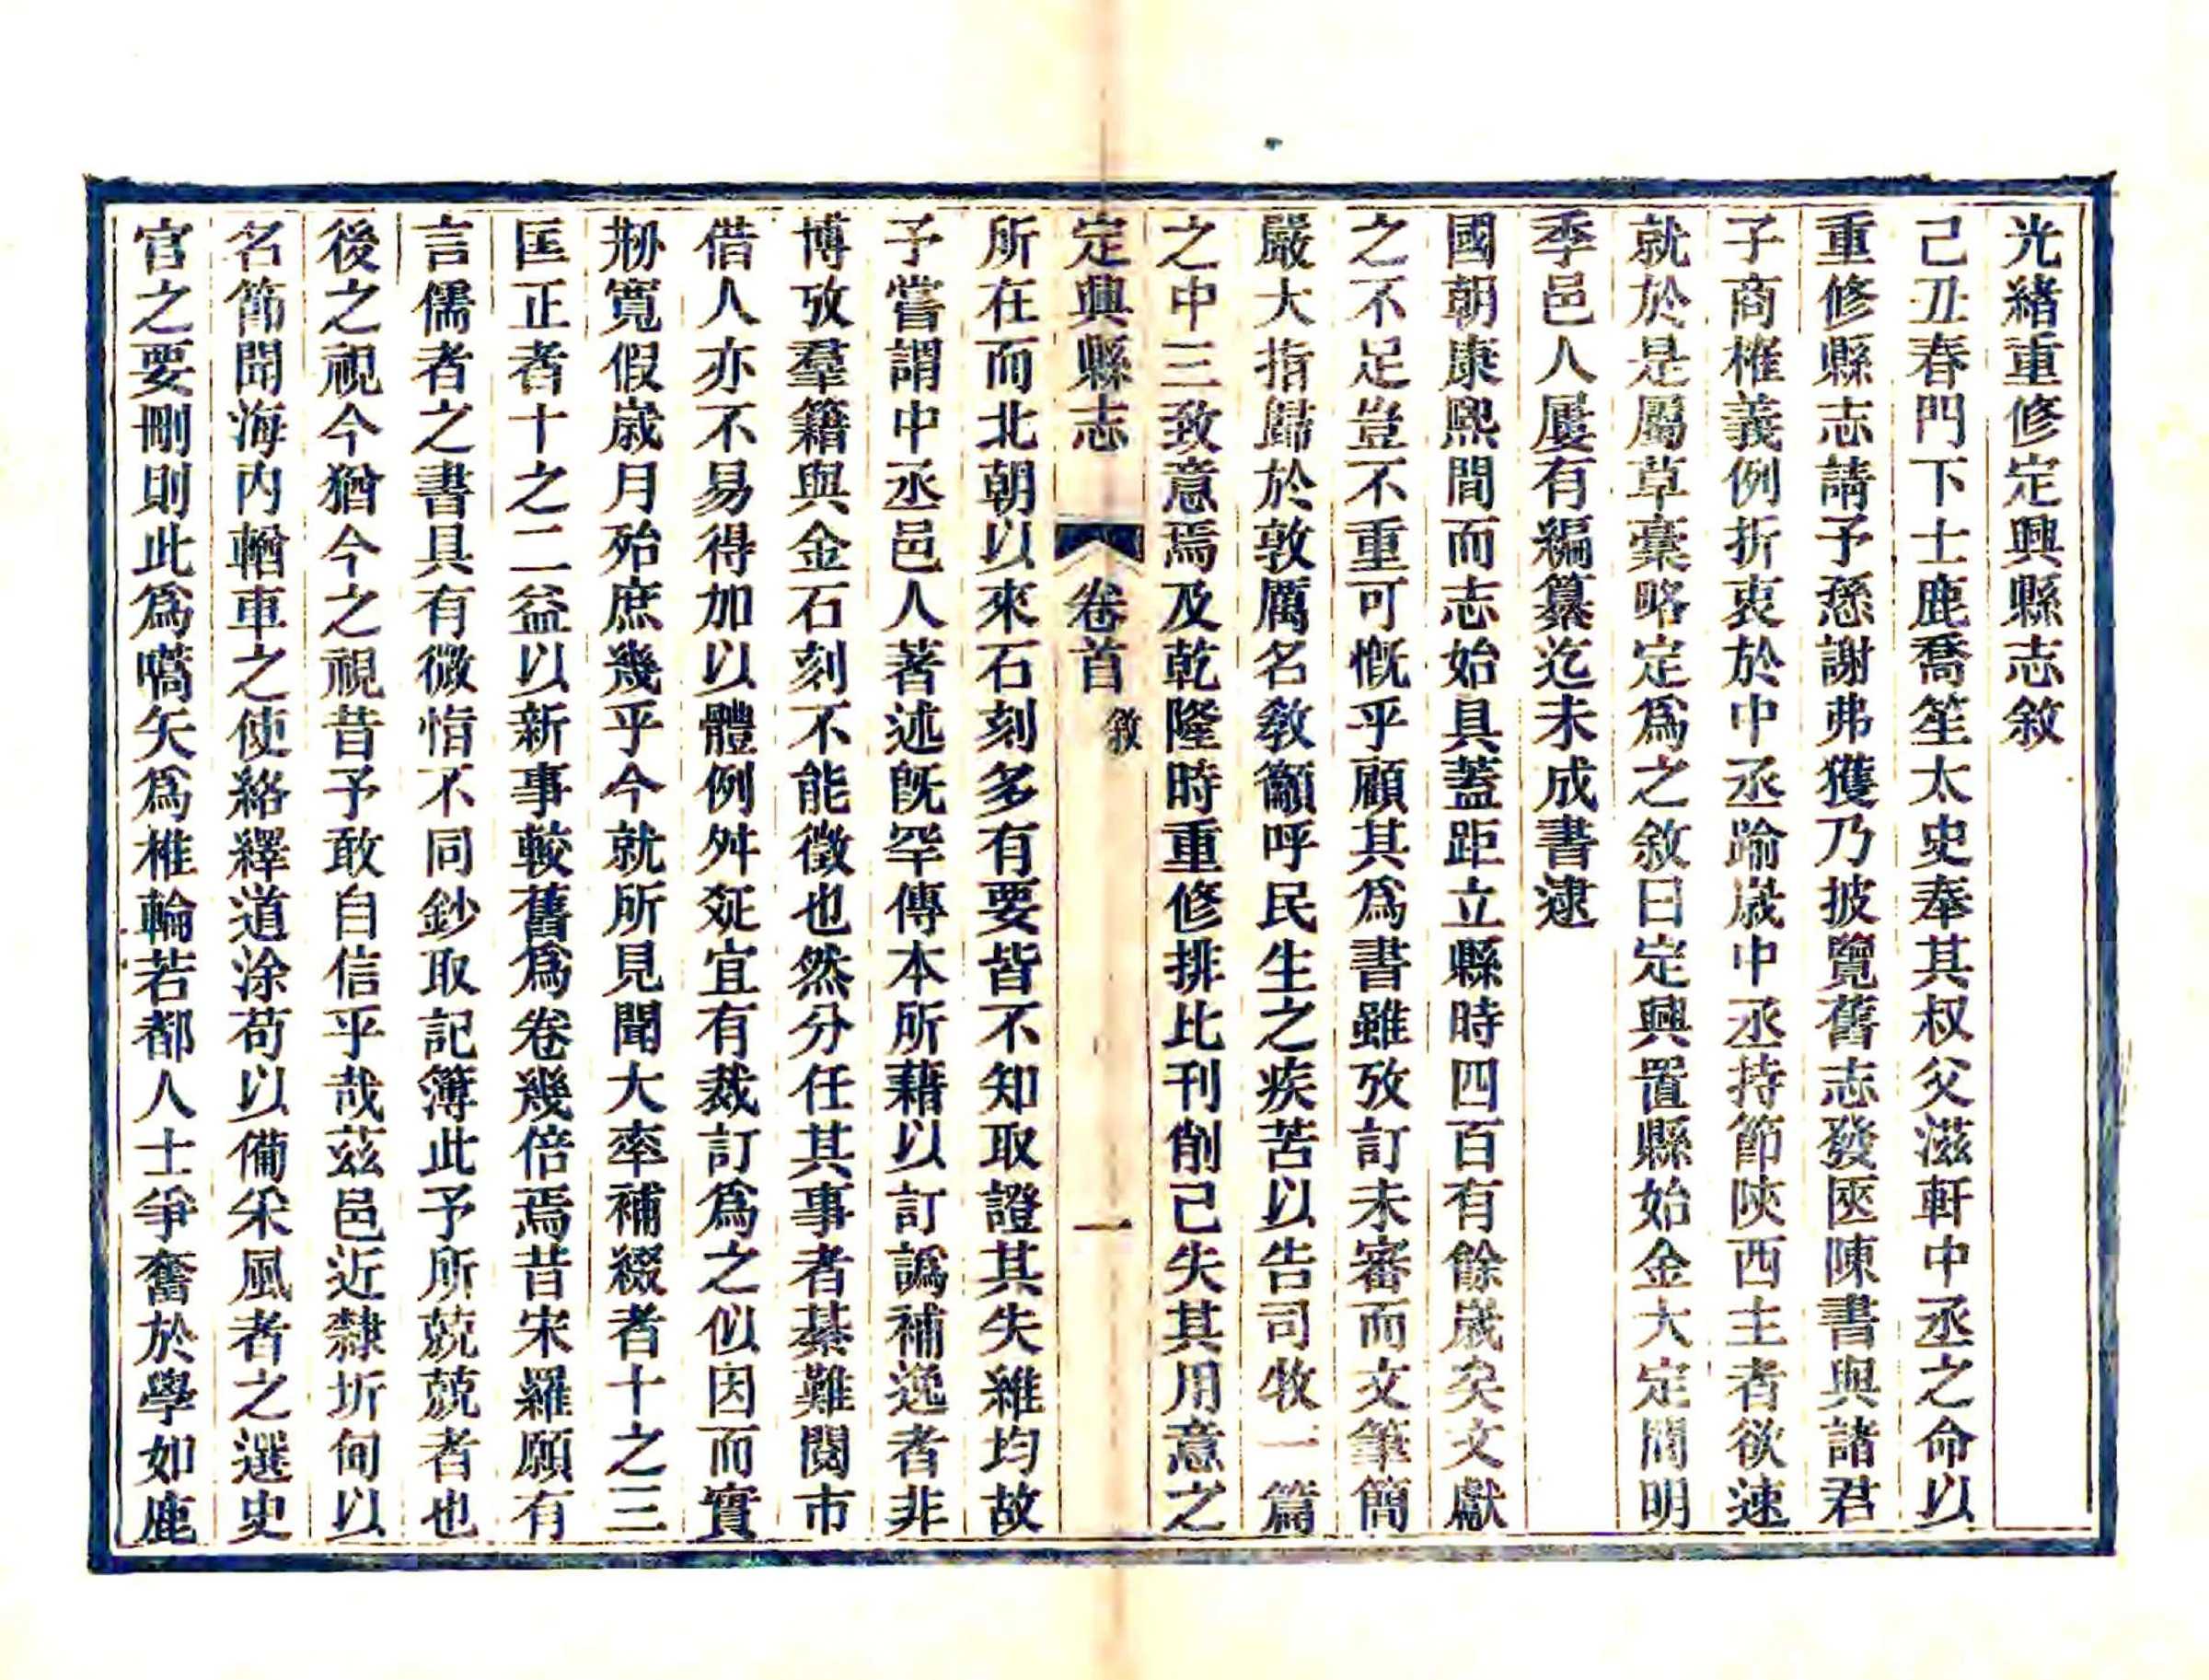 光緒重修定興縣志敘
己丑春門下士鹿喬笙太史奉其叔父滋軒中丞之命以
重修縣志請予悉謝弗獲乃披覽舊志發匧陳書與諸君
子商榷義例折衷於中丞踰歲中丞持節陝西主者欲速
就於是屬草稾略定爲之敘曰定興置縣始金大定間明
季邑人屢有編纂迄未成書逮
國朝康熙間而志始具蓋距立縣時四百有餘歲矣文獻
之不足豈不重可慨乎顧其爲書雖攷訂未審而文筆簡
嚴大指歸於敦厲名敎籲呼民生之疾苦以告司牧一篇
之中三致意焉及乾隆時重修排比刊削已失其用意之
定興縣志 卷首 敘 一
所在而北朝以來石刻多有要皆不知取證其失維均故
予嘗謂中丞邑人著述旣罕傳本所藉以訂譌補逸者非
博攷羣籍與金石刻不能徵也然分任其事者綦難閱市
借人亦不易得加以體例舛䇄宜有裁訂爲之似因而實
刱寬假歲月殆庶幾乎今就所見聞大率補綴者十之三
匡正者十之二益以新事較舊爲卷幾倍焉昔宋羅願有
言儒者之書具有微恉不同鈔取記簿此予所兢兢者也
後之視今猶今之視昔予敢自信乎哉茲邑近隸圻甸以
名節聞海內輶車之使絡繹道涂苟以備采風者之選史
官之要刪則此爲嚆矢爲椎輪若都人士爭奮於學如鹿